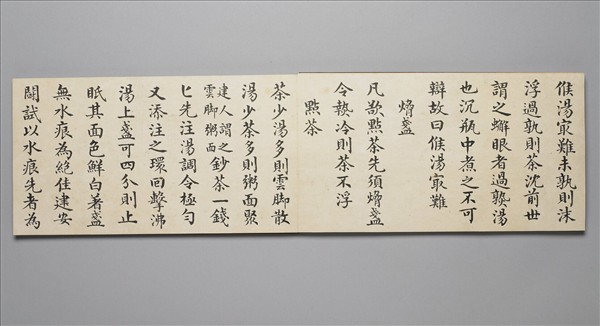 候湯冣難未孰則沫
浮過孰則茶沈前世
謂之蠏眼者過孰湯
也沉瓶中煮之不可
辯故曰候湯冣難
熁盞
凡欲點茶先須熁盞
令熱冷則茶不浮
點茶
茶少湯多則雲脚散
湯少茶多則粥面聚
建人謂之雲脚粥面鈔茶一錢
匕先注湯調令極勻
又添注之環回擊沸
湯上盞可四分則止
眡其面色鮮白著盞
無水痕為絕佳建安
鬭試以水痕先者為